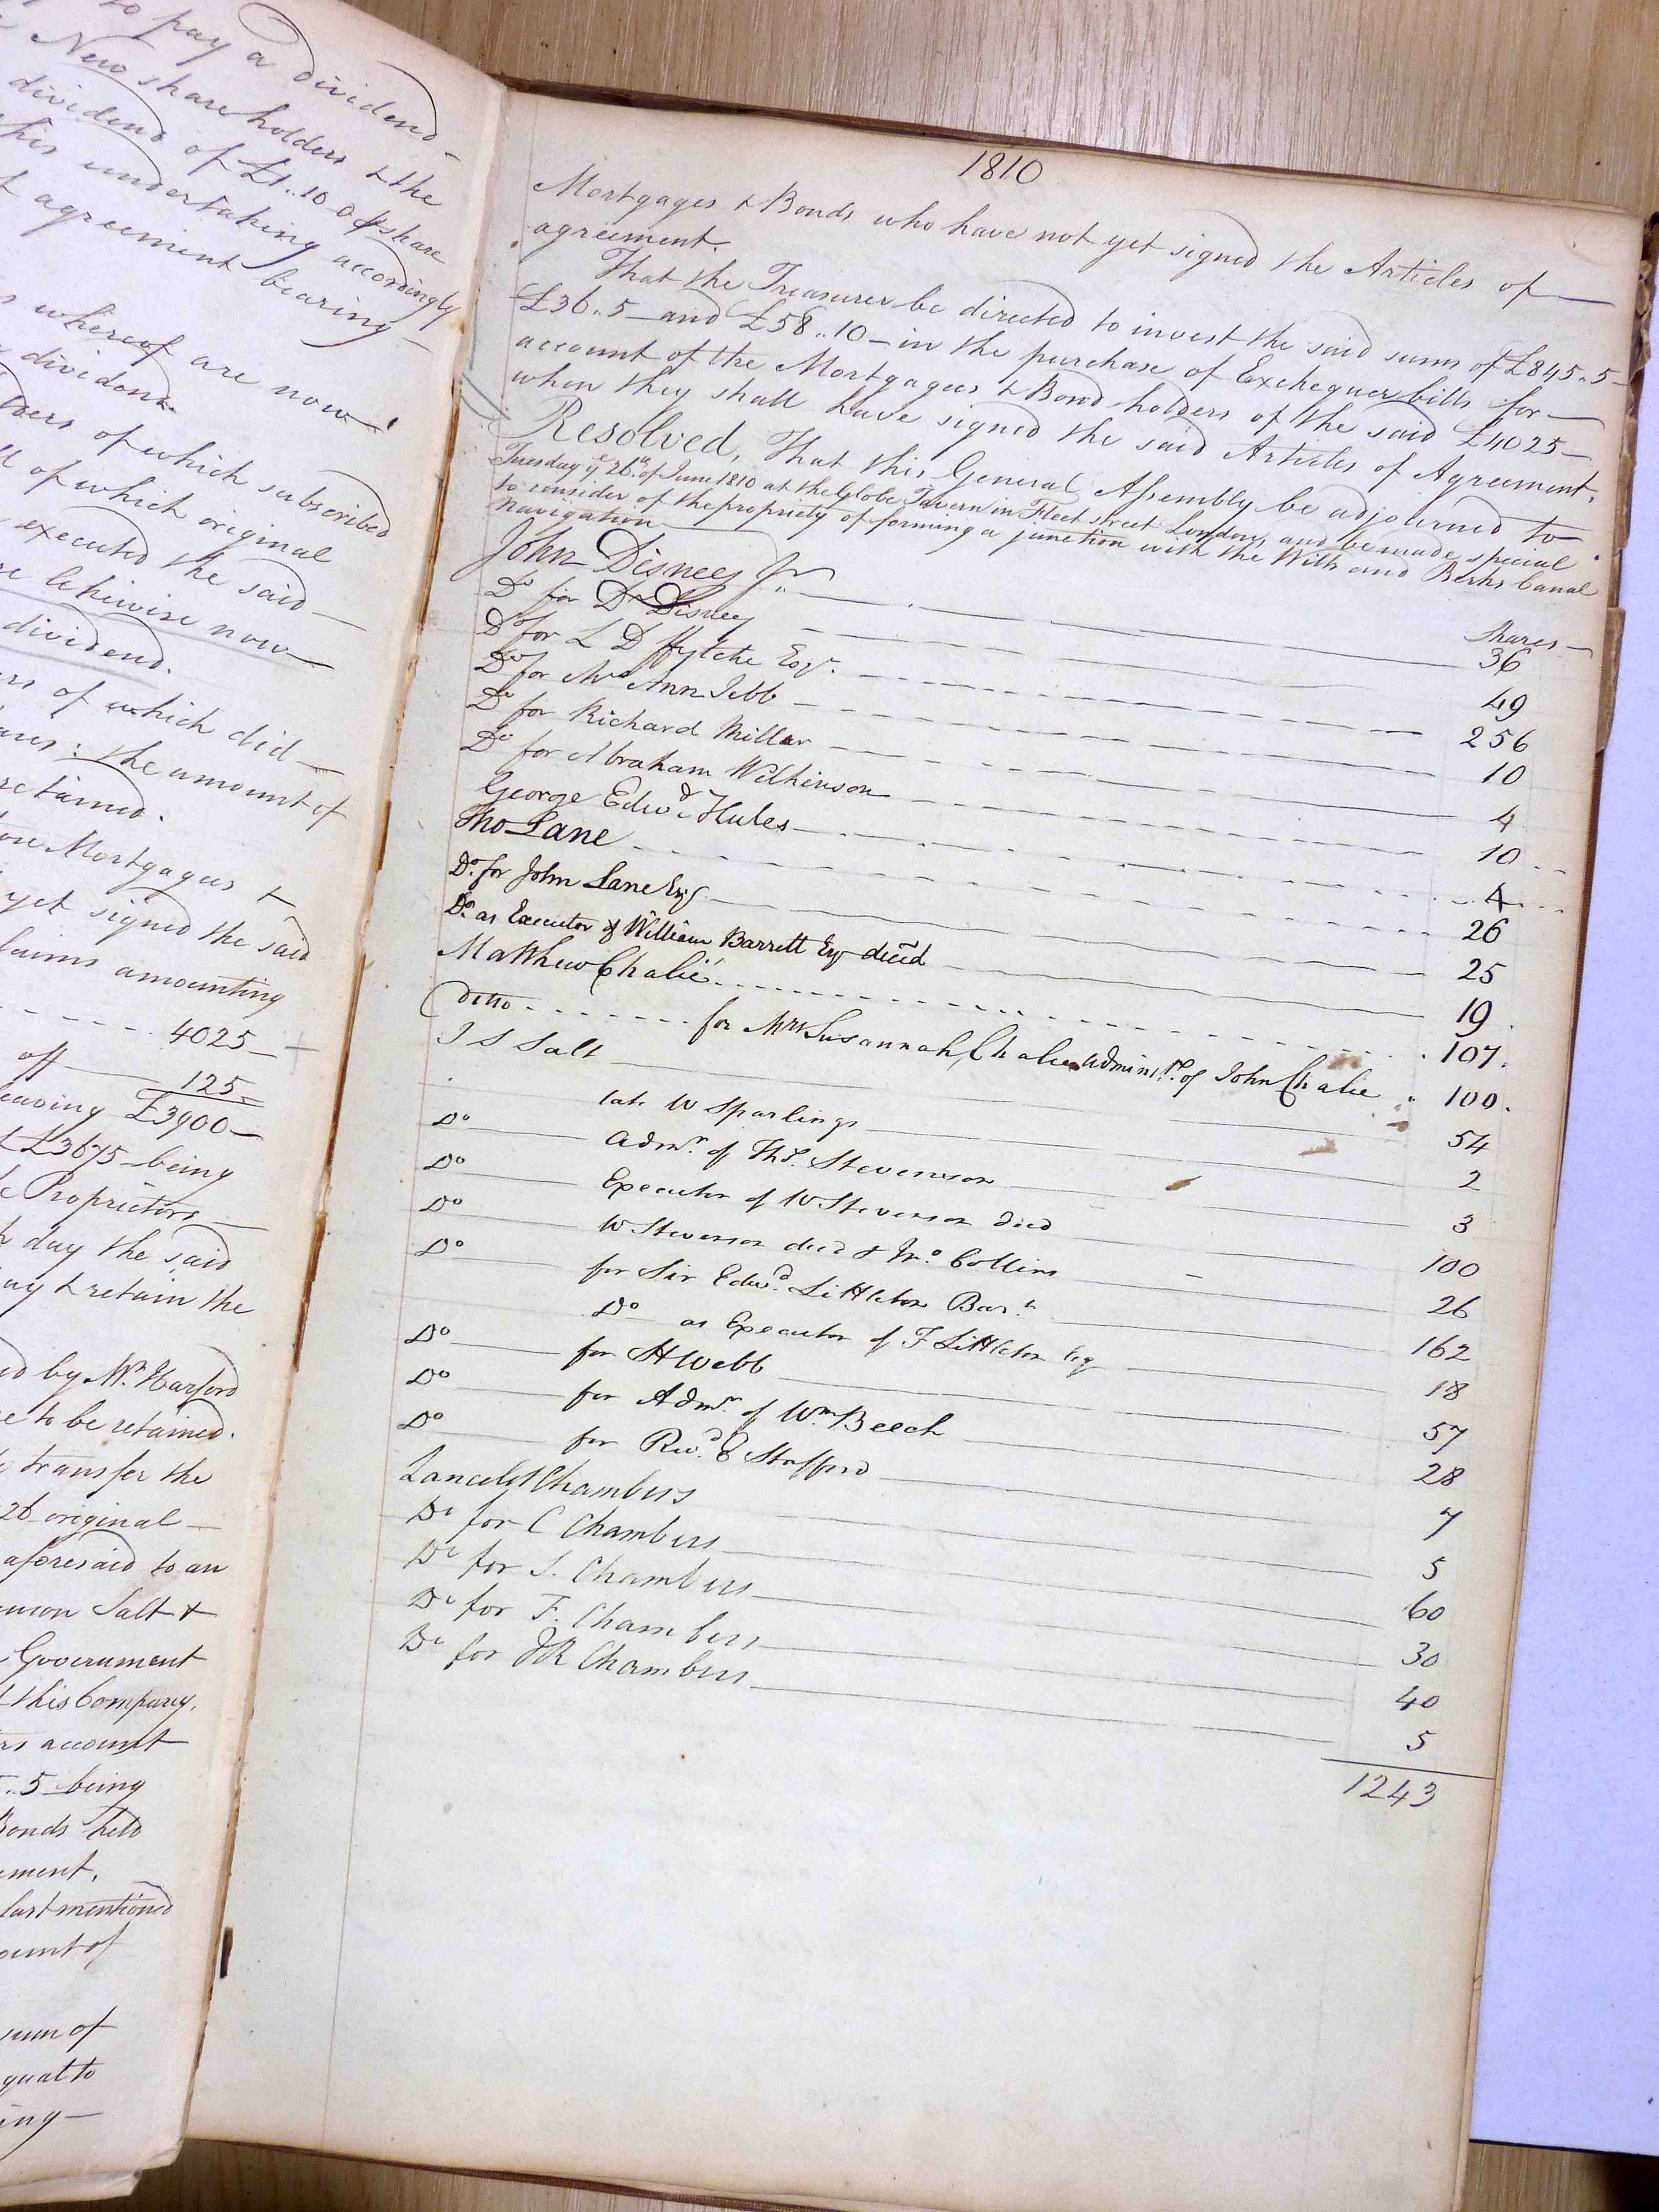 to pay a dividend
New shareholders & the
dividend of £1..10..0 pr share
this undertaking accordingly
agreement bearing
whereof are now
dividend.
of which subscribed
of which original
executed the said
likewise now
dividend.
of which did
the amount of
retained.
Mortgagees &
yet signed the said
claims amounting
4025
off 125
leaving £3900
£3675 being
Proprietors
day the said
& retain the
by Mr. Harford
to be retained.
transfer the
26 original
aforesaid to an
Salt &
Government
this Company.
account
5 being
Bonds held
last mentioned
sum of
equal to
1810
Mortgages & Bonds who have not yet signed the Articles of
agreement.
That the Treasurer be directed to invest the said sums of £845..5
£36..5 and £58..10 in the purchase of Exchequer bills for
account of the Mortgagees & Bond holders of the said £4025
when they shall have signed the said Articles of Agreement.
Resolved, That this General Assembly be adjourned to
Tuesday ye 26th of June 1810 at the Globe Tavern in Fleet street London, and be made special
to consider of the propriety of forming a junction with the Wilts and Berks Canal
Navigation
Shares
John Disney Jr. 36
Do for Dr Disney 49
Do for L D ffytche Esqr. 256
Do for Mrs Ann Jebb 10
Do for Richard Millar 4
Do for Abraham Wilkinson 10
George Edwd Hules 4
Tho Lane 26
Do. for John Lane Esq 25
Do. as Executor of William Barrett Esq decd 19
Matthew Chalié 107.
ditto for Mrs Susannah Chalie Administ. of John Chalie 100.
J S Salt 54
late W Sparlings 2
Do Admr. of Ths. Stevenson 3
Do Executor of W Stevenson decd 100
Do W Stevenson decd & Jno. Collins 26
Do for Sir Edwd. Littleton Bart. 162
Do as Executor of F Littleton Esq 18
Do for H Webb 57
Do for Admr. of Wm. Beech 28
Do for Revd. E Stafford 7
Lancelot Chambers 5
Do for C Chambers 60
Do for S. Chambers 30
Do for F. Chambers 40
Do for J R Chambers 5
1243